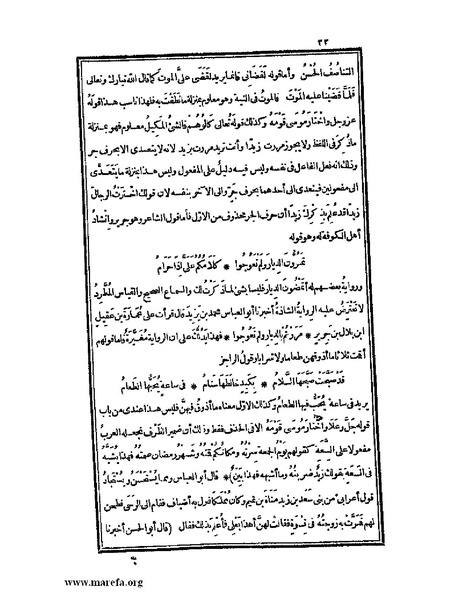 ٣٣
التناصف الحسن وأما قوله لقضاني فانما يريد لقضى علىّ الموت كما قال الله تبارك وتعالى
فلمّا قضينا عليه الموت فالموت في النية وهو معلوم بمنزلة ما نطقت به فلهذا ناسب هذا قوله
عز وجل واختار موسى قومه وكذلك قوله تعالى كالوهم فالشئ المكيل معلوم فهو بمنزلة
ماذكر في اللفظ ولا يجوز مررت زيدا وأنت تريد مررت بزيد لانه لا يتعدى الا بحرف جر
وذلك انه فعل الفاعل في نفسه وليس فيه دليل على المفعول وليس هذا بمنزلة ما يتعدّى
الى مفعولين فيتعدى الى أحدهما بحرف جر والى الآخر بنفسه لان قولك اخترت الرجال
زيدا قد علم بذكرك زيدا أن حرف الجر محذوف من الاول فأما قول الشاعر وهو جرير وانشاد
أهل الكوفة له وهو قوله
تمرون الديار ولم تعوجوا * كلامكم علىّ اذا حرام
ورواية بعضهم له أتمضون الديار فليسا بشئ لما ذكرت لك والسماع الصحيح والقياس المطرد
لا تعترض عليه الرواية الشاذة أخبرنا أبو العباس محمد بن يزيد قال قرأت على عمارة بن عقيل
ابن بلال بن جرير * مررتم بالديار ولم تعوجوا * فهذا يدلك على ان الرواية مغيرة فأما قولهم
أقمت ثلاثا ما أذوقهن طعاما ولا شرابا وقول الراجز
قد صبحت صبحها السلام * بكبد خالطها سنام * في ساعة يحبها الطعام
يريد في ساعة يحب فيها الطعام وكذلك الاول معناه ما أذوق فيهن فليس هذا عندى من باب
قوله جل وعلا واختار موسى قومه الا في الحذف فقط وذلك أن ضمير الظرف تجعله العرب
مفعولا على السعة كقولهم يوم الجمعة سرته ومكانكم قمته وشهر رمضان صمته فهذا يشبه
في السعة بقولك زيد ضربته وما أشبهه فهذا بيّن * قال أبو العباس ومما يستحسن ويستجاد
قول أعرابي من بني سعد بن زيد مناة بن تميم وكان مملكا فنزل به أضياف فقام الى الرحى فطحن
لهم فمرت به زوجته في نسوة فقالت لهن أهذا بعلى فأعلم بذلك فقال (قال أبو الحسن أخبرنا
www.marefa.org